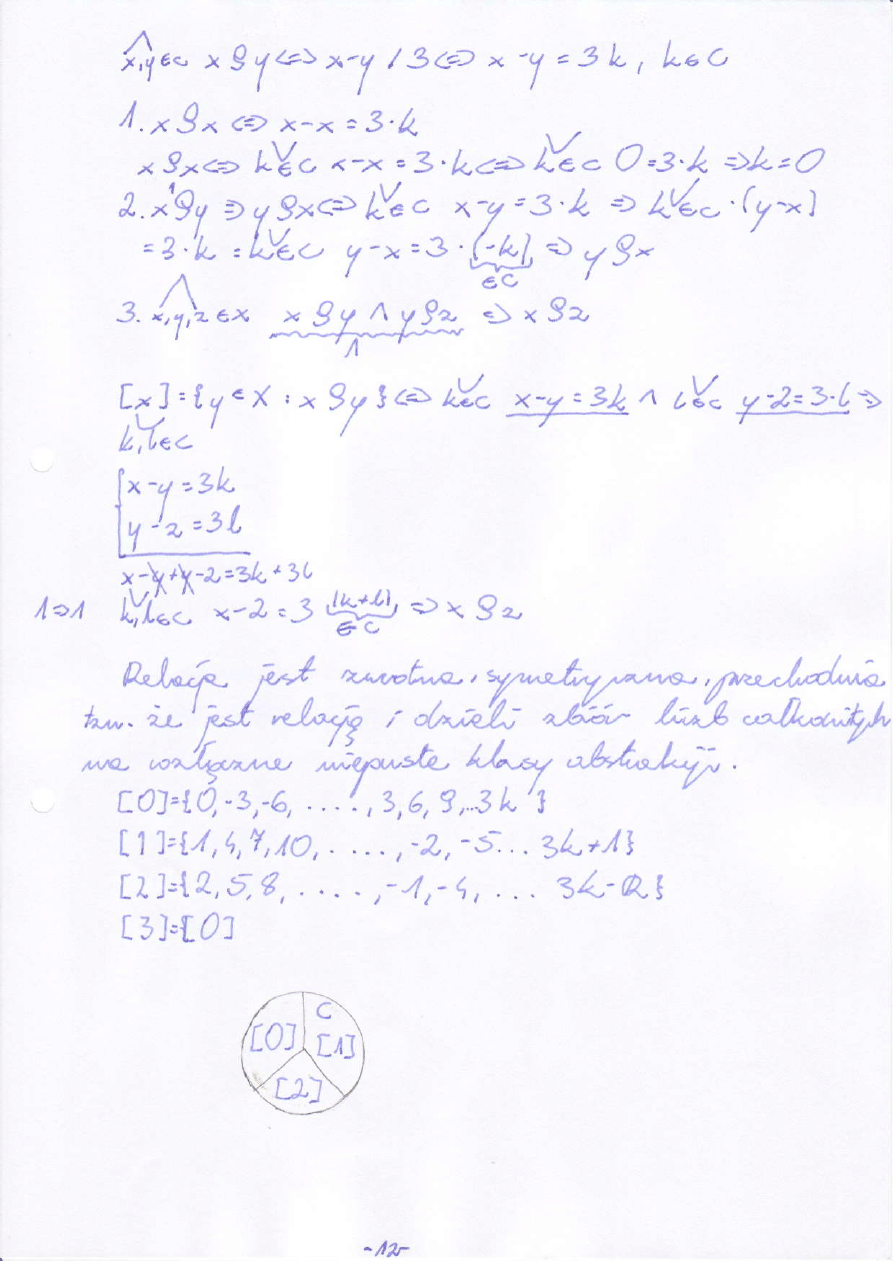 ⋀ x,y∈C x ϱ y ⇔ x-y / 3 ⇔ x-y = 3k, k∈C
1. x ϱ x ⇔ x-x = 3·k
x ϱ x ⇔ ⋁ k∈C x-x = 3·k ⇔ ⋁ k∈C 0=3·k ⇒ k=0
2. x ϱ y ⇒ y ϱ x ⇔ ⋁ k∈C x-y = 3·k ⇒ ⋁ k∈C -(y-x)
= 3·k = ⋁ k∈C y-x = 3·(-k) ⇒ y ϱ x
∈C
3. ⋀ x,y,z∈X x ϱ y ∧ y ϱ z ⇒ x ϱ z
1
[x]={y∈X : x ϱ y} ⇔ ⋁ k∈C x-y=3k ∧ ⋁ l∈C y-z=3·l ⇒
⋁ k,l∈C
{x-y=3k
y-z=3l
x-y+y-z=3k+3l
1⇒1 ⋁ k,l∈C x-z=3(k+l) ⇒ x ϱ z
∈C
Relacja jest zwrotna, symetryczna, przechodnia
tzn. że jest relacją i dzieli zbiór liczb całkowitych
na rozłączne niepuste klasy abstrakcji.
[0]={0,-3,-6, ...., 3,6,9,...3k }
[1]={1,4,7,10, ...., -2,-5... 3k+1}
[2]={2,5,8, ...., -1,-4, ... 3k-2}
[3]=[0]
C
[0] [1]
[2]
-12-